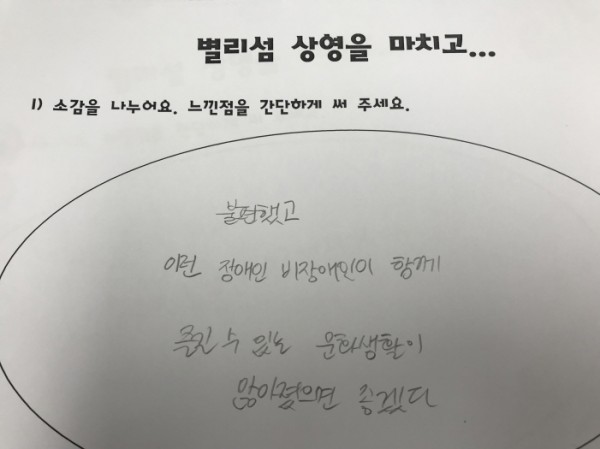 별리섬 상영을 마치고...
1) 소감을 나누어요. 느낀점을 간단하게 써 주세요.
불편했고
이런 장애인 비장애인이 함께
즐길 수 있는 문화생활이
많아졌으면 좋겠다